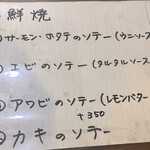 鮮焼
サーモン・ホタテのソテー(ウニソース
エビのソテー(タルタルソース
アワビのソテー(レモンバター
+350
カキのソテー